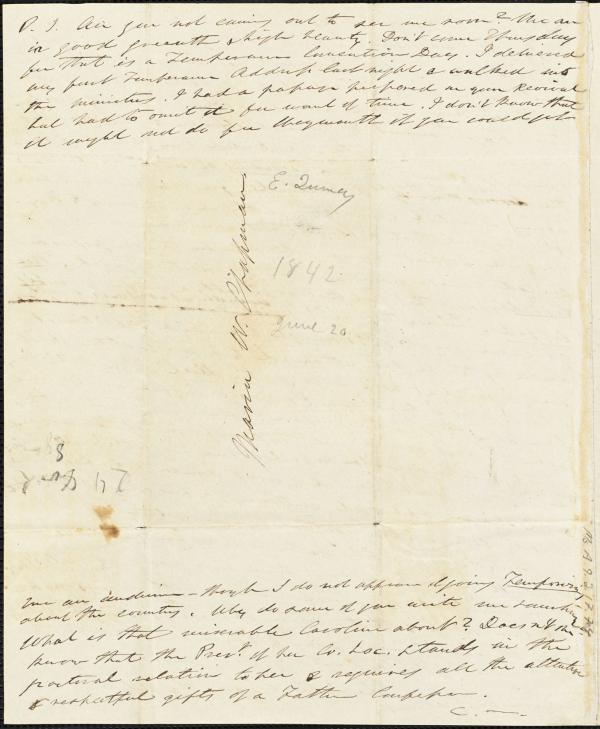 P. S. Are you not coming out to see me soon? We are
in good growth & high beauty. Don't come Thursday
for that is a Temperance Convention Day. I delivered
my first Temperance Address last night & walked into
the ministers. I had a passage prepared on your Revival
but had to omit it for want of time. I don't know that
it might not do for Weymouth if you could get
E. Quincy
1842
June 20
Maria W. Chapman.
me an audience – though I do not approve of going
about the country. Why do none of you write me
What is that miserable Caroline about? Does
know that the Presᵗ. of her Co. Soc. stands in the
pastoral relation to her & requires all the attention
& respectful gifts of a Father